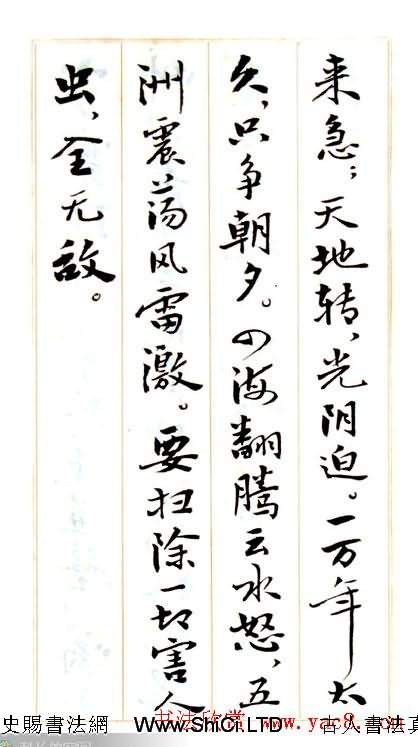 来急；天地转，光阴迫。一万年太
久，只争朝夕。四海翻腾云水怒，五
洲震荡风雷激。要扫除一切害人
虫，全无敌。
史賜書法網
www.ShiCi.LTD
书法欣赏 www.yac8.com
古人書法真